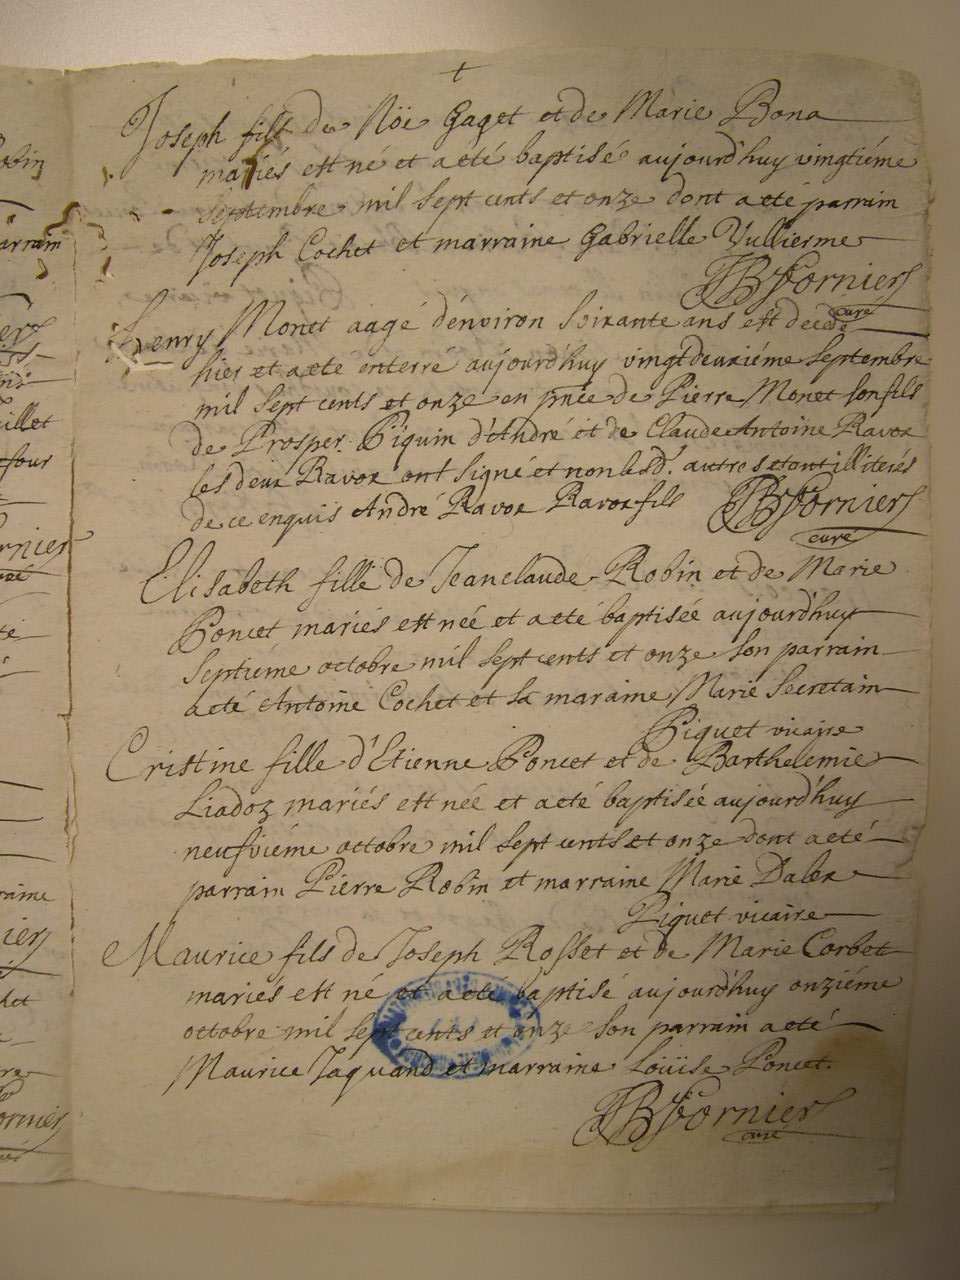 +
Joseph fils de Nöe Gaget et de Marie Bona
mariés est né et a eté baptisé aujourd'huy vingtiéme
septembre mil sept cents et onze dont a eté parrain
Joseph Cochet et marraine Gabrielle Vullierme
JB Fornier
curé
Henry Monet aagé d'environ Soixante ans est decedé
hier et a eté enterré aujourd'huy vingtdeuxiéme septembre
mil sept cents et onze en pñce de Pierre Monet son fils
de Prosper Piquin d'André et de Claude Antoine Ravox
les deux Ravox ont signé et non lesd. autres etant illiterés
de ce enquis André Ravox Ravox fils JB Fornier
curé
Elisabeth fille de Jeanclaude Robin et de Marie
Poncet mariés est née et a eté baptisée aujourd'huy
septiéme octobre mil sept cents et onze son parrain
a eté Antoine Cochet et sa maraine Marie Secretain
Piquet vicaire
Cristine fille d'Etienne Poncet et de Barthelemie
Liadoz mariés est née et a eté baptisée aujourd'huy
neufviéme octobre mil sept cents et onze dont a eté
parrain Pierre Robin et marraine Marie Dalex
Piquet vicaire
Maurice fils de Joseph Rosset et de Marie Corbet
mariés est né et a eté baptisé aujourd'huy onziéme
octobre mil sept cents et onze son parrain a eté
Maurice Jaquand et marraine Loüise Poncet.
JB Fornier
curé